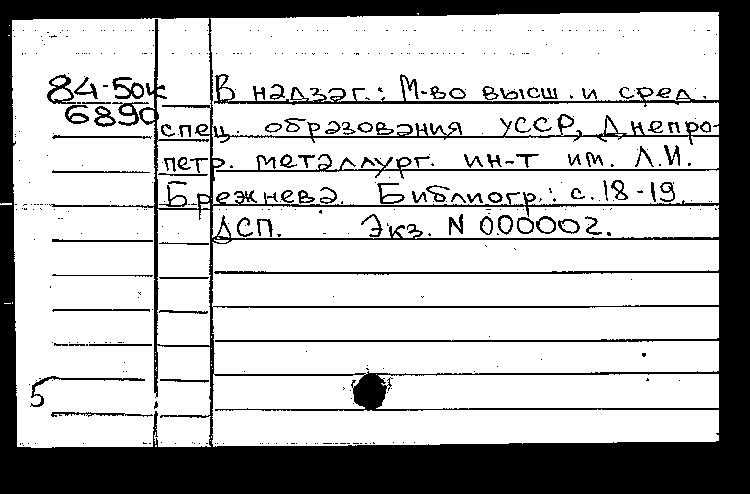 84-5ок
6890
В надзаг.: М-во высш. и сред.
спец. образования УССР, Днепро-
петр. металлург. ин-т им. Л.И.
Брежнева. Библиогр.: с. 18-19.
ДСП. Экз. N 000002.
5